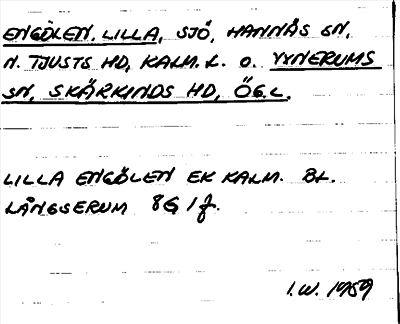 ENGÖLEN, LILLA, SJÖ, HANNÅS SN,
N. TJUSTS HD, KALM. L. O. YXNERUMS
SN, SKÄRKINDS HD, ÖG.L.
LILLA ENGÖLEN EK KALM. BL.
LÅNGSERUM 8G 1f.
I.W. 1959